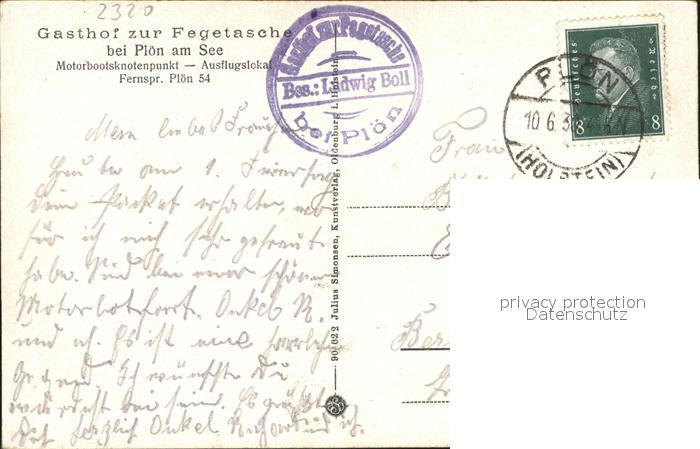 2320
Gasthof zur Fegetasche
bei Plön am See
Motorbootsknotenpunkt — Ausflugslokal
Fernspr. Plön 54
Gasthof zur Fegetasche
Bes.: Ludwig Boll
bei Plön
Deutsches Reich
8 8
PLÖN
10.6.3
(HOLSTEIN)
Mein liebes
Habe am 1.
dein Packet erhalten, wo
für ich mich sehr gefreut
habe. Sind bei einer schönen
Motorbotfart. Onkel R.
und ich. Es ist eine
Gegend. Ich wünschte Du
bei sein. Es grüßt
Dich herzlich Onkel und ich.
90 022 Julius Simonsen, Kunstverlag, Oldenburg i. Holstein
Frau
privacy protection
Datenschutz